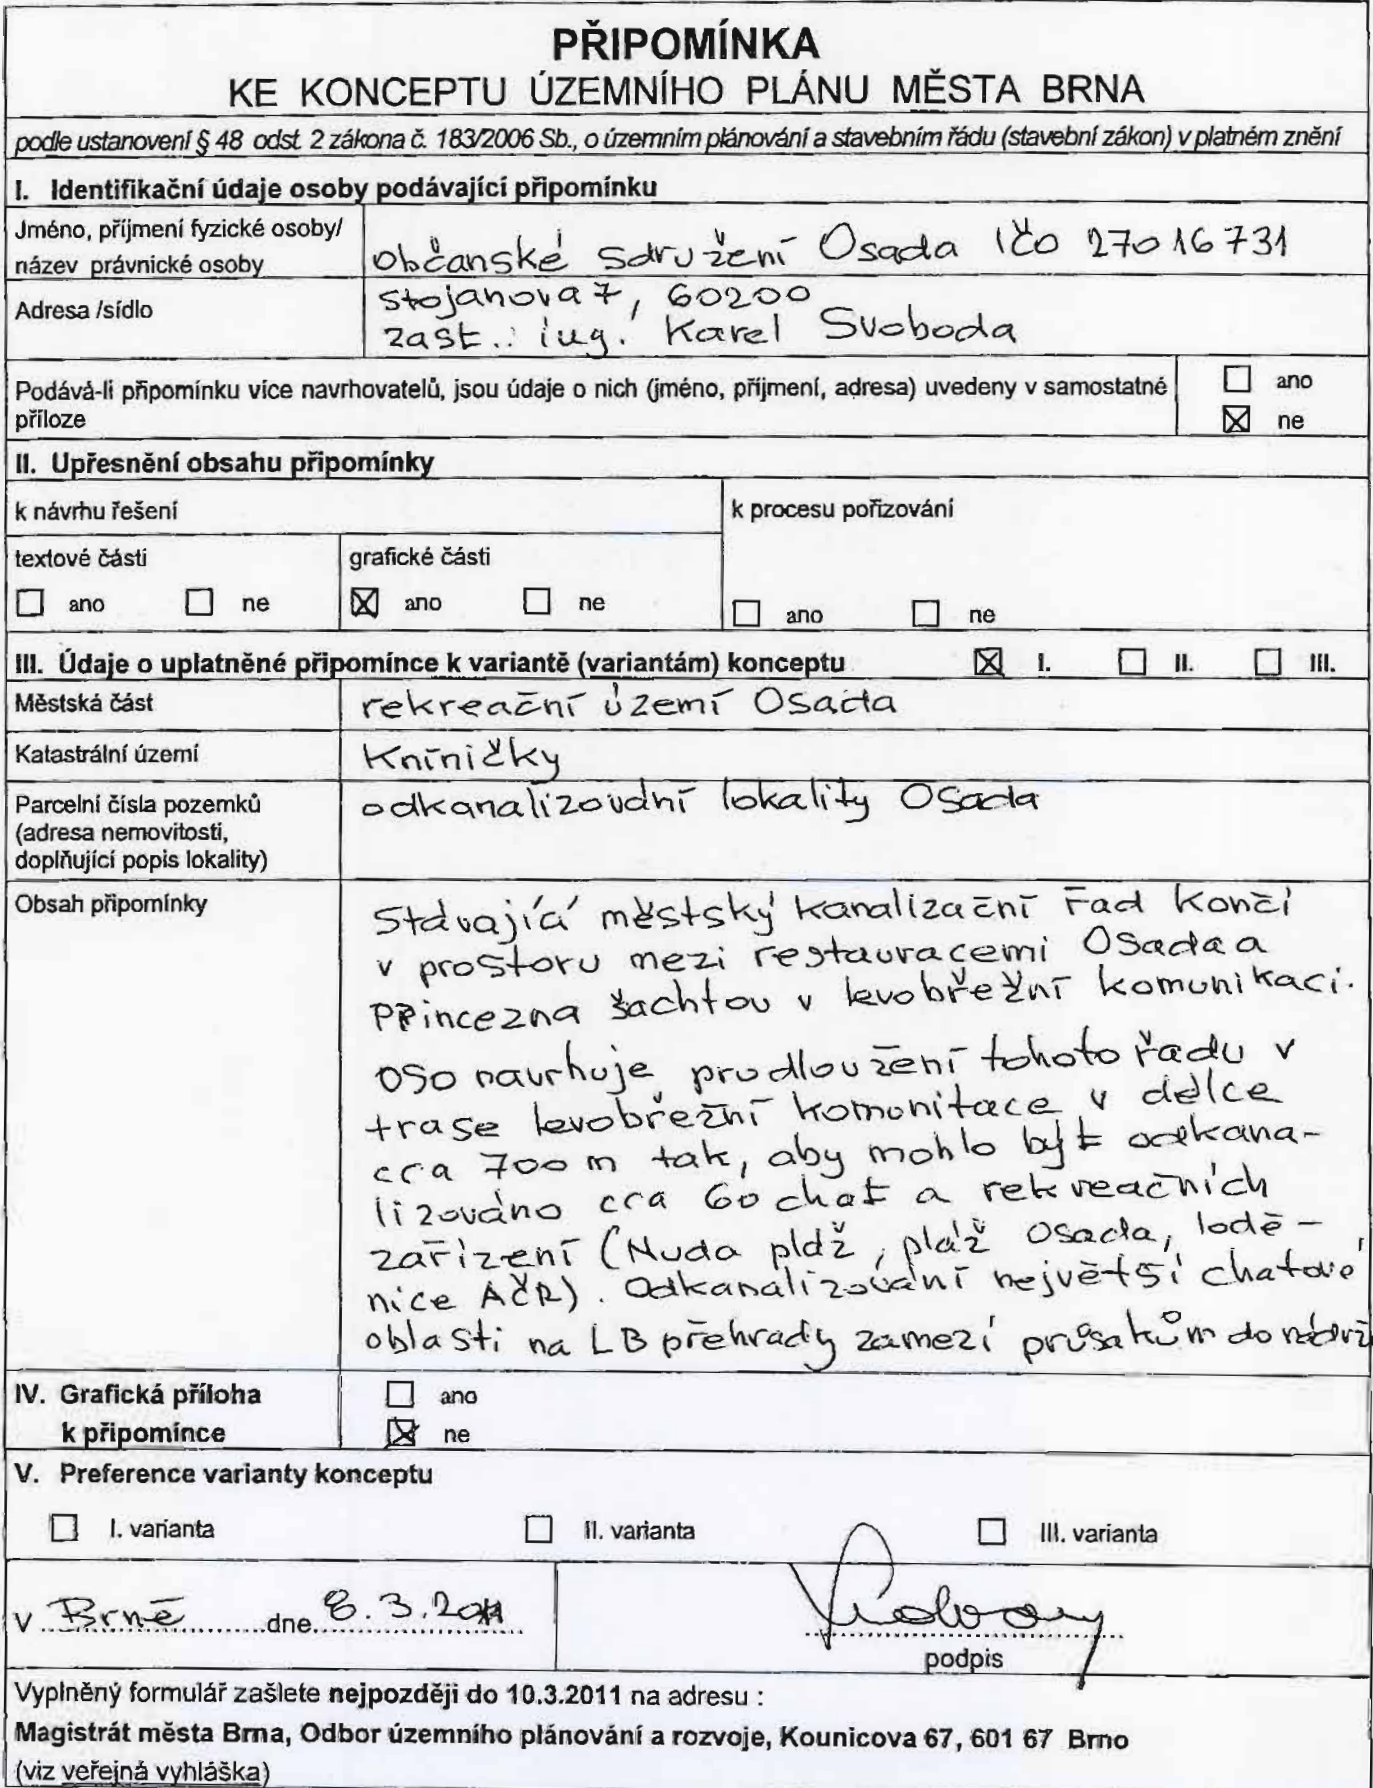 PŘIPOMÍNKA
KE KONCEPTU ÚZEMNÍHO PLÁNU MĚSTA BRNA
podle ustanovení § 48 odst. 2 zákona č. 183/2006 Sb., o územním plánování a stavebním řádu (stavební zákon) v platném znění
I. Identifikační údaje osoby podávající připomínku
Jméno, příjmení fyzické osoby/
název právnické osoby
občanské sdružení Osada IČO 27016731
Adresa /sídlo
Stojanova 7, 60200
zast.: ing. Karel Svoboda
Podává-li připomínku více navrhovatelů, jsou údaje o nich (jméno, příjmení, adresa) uvedeny v samostatné
příloze
ano
ne
II. Upřesnění obsahu připomínky
k návrhu řešení
k procesu pořizování
textové části
grafické části
ano ne ano ne ano ne
III. Údaje o uplatněné připomínce k variantě (variantám) konceptu I. II. III.
Městská část
rekreační území Osada
Katastrální území
Kníničky
Parcelní čísla pozemků
(adresa nemovitosti,
doplňující popis lokality)
odkanalizování lokality Osada
Obsah připomínky
Stávající městský kanalizační řad končí
v prostoru mezi restauracemi Osada a
Princezna šachtou v levobřežní komunikaci.
OSO navrhuje prodloužení tohoto řadu v
trase levobřežní komunitace v délce
cca 700 m tak, aby mohlo být odkana-
lizováno cca 60 chat a rekreačních
zařízení (Nuda pláž, pláž Osada, lodě-
nice AČR). Odkanalizování největší chatové
oblasti na LB přehrady zamezí průsakům do nádrž
IV. Grafická příloha
k připomínce
ano
ne
V. Preference varianty konceptu
I. varianta II. varianta III. varianta
v Brně dne 8.3.2011
podpis
Vyplněný formulář zašlete nejpozději do 10.3.2011 na adresu :
Magistrát města Brna, Odbor územního plánování a rozvoje, Kounicova 67, 601 67 Brno
(viz veřejná vyhláška)